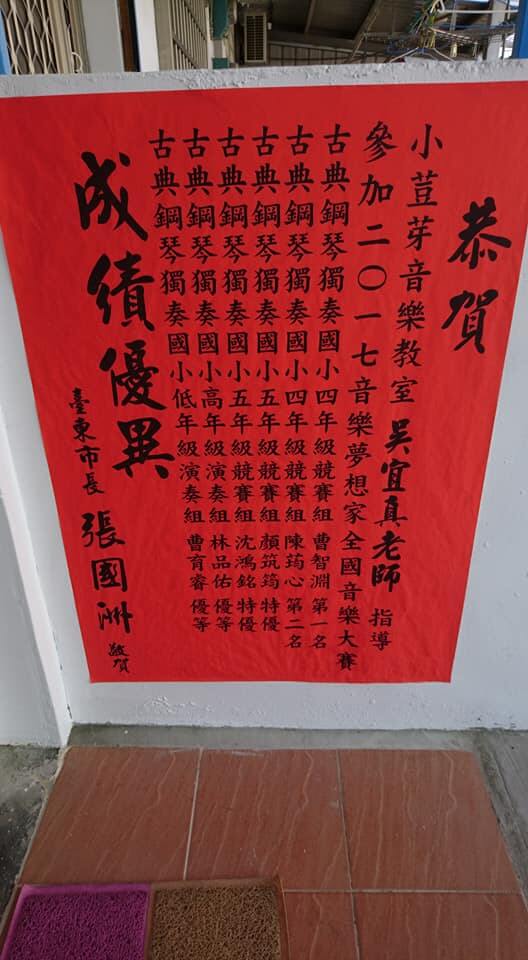 恭賀
小荳芽音樂教室 吳宜真老師 指導
參加二〇一七音樂夢想家全國音樂大賽
古典鋼琴獨奏國小四年級競賽組 曹智淵 第一名
古典鋼琴獨奏國小四年級競賽組 陳筠心 第二名
古典鋼琴獨奏國小五年級競賽組 顏筑筠 特優
古典鋼琴獨奏國小五年級競賽組 沈鴻銘 特優
古典鋼琴獨奏國小高年級演奏組 林品佑 優等
古典鋼琴獨奏國小低年級演奏組 曹育睿 優等
成績優異
臺東市長 張國洲 敬賀